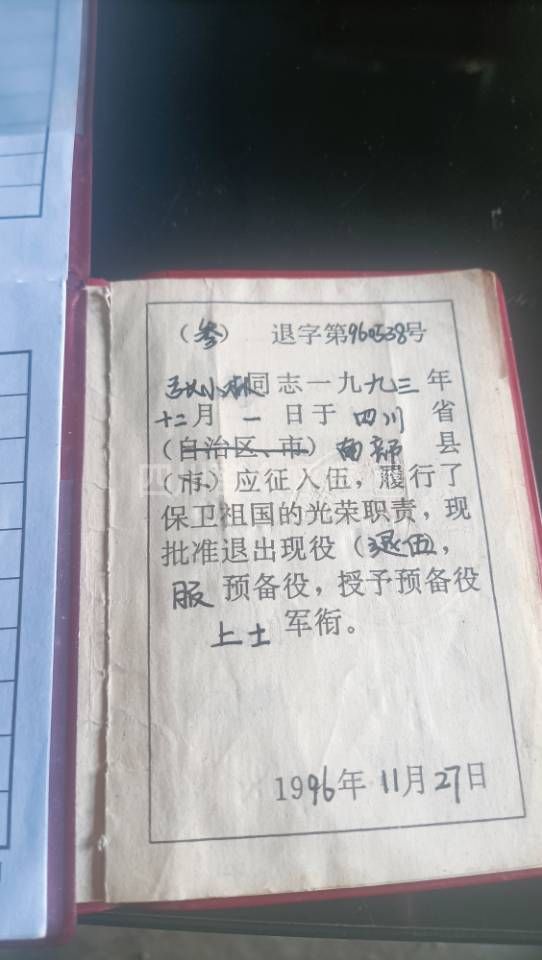 （参） 退字第960538号
同志一九九三年
十二月一日于四川省
（自治区、市）南部县
（市）应征入伍，履行了
保卫祖国的光荣职责，现
批准退出现役（退伍，
服预备役，授予预备役
上士军衔。
1996年11月27日